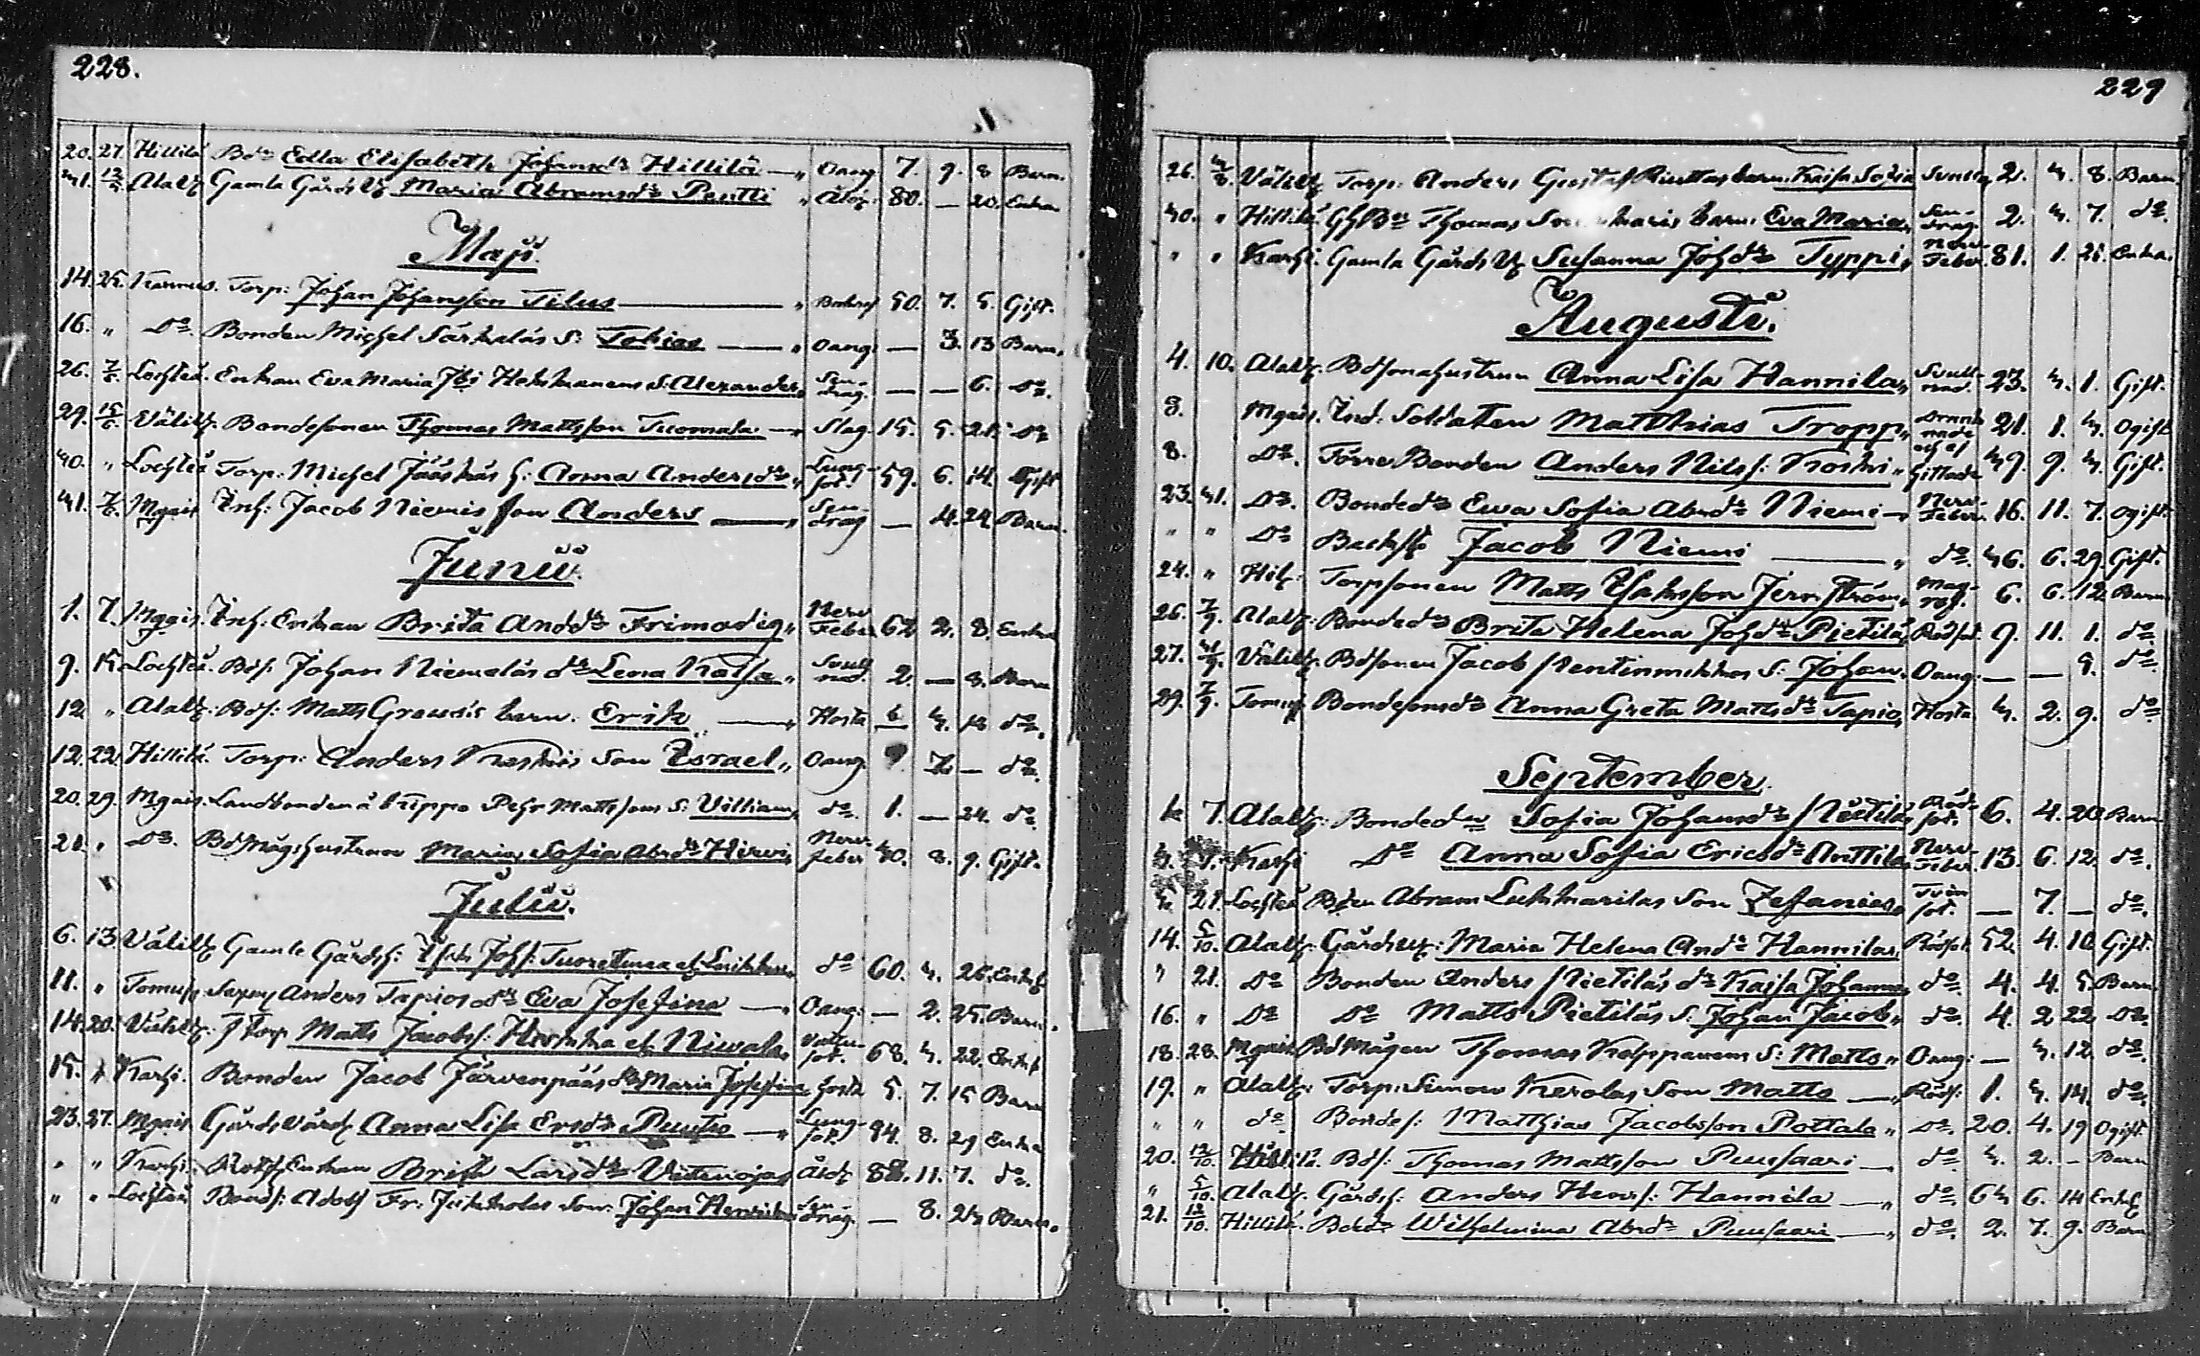 228.
20. 27. Hillilä Bdr Edla Elisabeth Johansdr Hillilä — " Oang. 7. 9. 8 Barn.
41. 12/5. Alatz Gamla Gårds Maria Abramsdr Pentti " Ålds. 80. — 20. Enka
Maji.
14. 25. Kannus. Torp: Johan Johansson Tilus — " 50. 7. 5. Gift.
16. " Do. Bonden Michel Särkeläs S: Tobias — " Oang: — 3. 13 Barn.
26. 7/6. Lochteå. Enkan Eva Maria S: Alexander " Sendrag. — — 6. Do.
29. 15/6. Välitz. Bondesonen Thomas Mattsson Tuomala — " Slag. 15. 5. 21. Do
40. " Lochteå Torp: Michel Jääskäs h: Anna Andersdr " Lungsot. 59. 6. 14. Gift
41. 7/6. Mgais Inh: Jacob Niemis son Anders — " Sendrag — 4. 24. Barn.
Junii.
1. 7. Mgais. Inh: Enkan Brita Andsdr Frimodig " Nerv Feber 62 2. 8. Enka
9. 15 Lochteå. Bds: Johan Niemeläs dr Lena Kajsa " Svullnad. 2. — 8. Barn
12 " Alatz: Bds: Matts barn: Erik — " Hosta — 4. 12 do.
12. 22. Hillilä. Torp: Anders Keskis Son Israel " Oang. 9. 7. — do.
20. 29. Mgais: Landbonden å Pehr Mattssons S: William " do. 1. — 24. do.
21. " Do. Bdmågshustrun Maria Sofia Abrdr Hirvi " Nervfeber 40. 8. 9. Gift.
Julii.
6. 13 Välitz Gamle Gårdsh: " do 60. 4. 26. Enkl
11. " Tomuj Anders Tapios dr Eva Josefina — " Oang. — 2. 25. Barn.
14. 20. Välitz. Torp Matts Jacobss: el. Niwala " Vattusot. 68. 4. 22. Enkl
15. " Karhi. Bonden Jacob Järvenpääs dr Maria Josefina hosta 5. 7. 15 Barn
23. 27. Mgais Gårdsvärd Anna Lisa Ersdr Puutio — " Lungsot 94. 8. 29 Enka
" " Karhi. Enkan Brita Larsdr Vetenojas Ålds 88. 11. 7. do.
" " Lochteå Bonds: Adolf Fr: Son: Johan Henrik Sendrag. — 8. 24 Barn.
229
26. 4/8. Välitz Torp: Anders Gustaf barn: Kajsa Sofia 2. 4. 8. Barn.
40. " Hillilä Thomas barn: Eva Maria " Sendrag. 2. 4. 7. do.
" " Karhi. Gamla Gårds Susanna Johsdr Typpi " Nerv Feber. 81. 1. 21. Enka.
Augusti.
4. 10. Alatz. Bdsonahustrun Anna Lisa Hannila " Svullnad. 23. 4. 1. Gift.
3. Mgais. Ind: Soldaten Matthias Tropp " Drunknade 21. 1. 4. Ogift
8. Do. Förre Bonden Anders Nilss: Koski " hittade 49. 9. 4. Gift.
23. 41. Do. Bondedr Eva Sofia Abrdr Niemi — " Nerv-Feber. 16. 11. 7. Ogift
" " Do Jacob Niemi — " do. 46. 6. 29. Gift.
24. " Hil: Torpsonen Matts Jernström " Mag-rof. 6. 6. 12 Barn
26. 7/9. Alatz: Bondedr Brita Helena Johsdr Pietilä Rödsot. 9. 11. 1. do.
27. 21/9. Välitz. Bdsonen Jacob S: Johan. Oang: — — 9. do.
29. 7/9. Tomuj. Bondesonsdr Anna Greta Mattsdr Tapio " Hosta 4. 2. 9. do.
September.
1. 7. Alatz: Bondedr Sofia Johansdr Pietilä Rödsot. 6. 4. 20 Barn
Karhi Do Anna Sofia Ericsdr Anttila Nerv-Feber. 13. 6. 12. do.
21. Lochteå Bden Abram Lukkarilas Son Zefanias Tvinsot. — 7. — do.
14. 5/10. Alatz. Gårds: Maria Helena Andr Hannila " Rödsot. 52. 4. 10. Gift.
" 21. Do Bonden Anders Pietiläs dr Kajsa Johanna do. 4. 4. 5. Barn
16. " Do Do Matts Pietiläs S: Johan Jacob " do. 4. 2 22 Do
18. 28. Mgais Bdmågen Thomas Kalppanens S: Matts " Oang: — 4. 12. do.
19. " Alatz: Torp: Simon Kerolas Son Matts — " Röds: 1. 4. 14. do.
" " do. Bondes: Matthias Jacobsson Pottala " Do. 20. 4. 19 Ogift.
20. 12/10. Hillilä. Bds: Thomas Mattsson Puusaari — " do. 4. 2. — Barn
" 5/10. Alatz. Gårdsh: Anders Henrs: Hannila — " do. 64 6. 14 Enkl
21. 12/10. Hillilä. Bdedr Wilhelmina Abrdr Puusaari — " do. 2. 7. 9. Barn